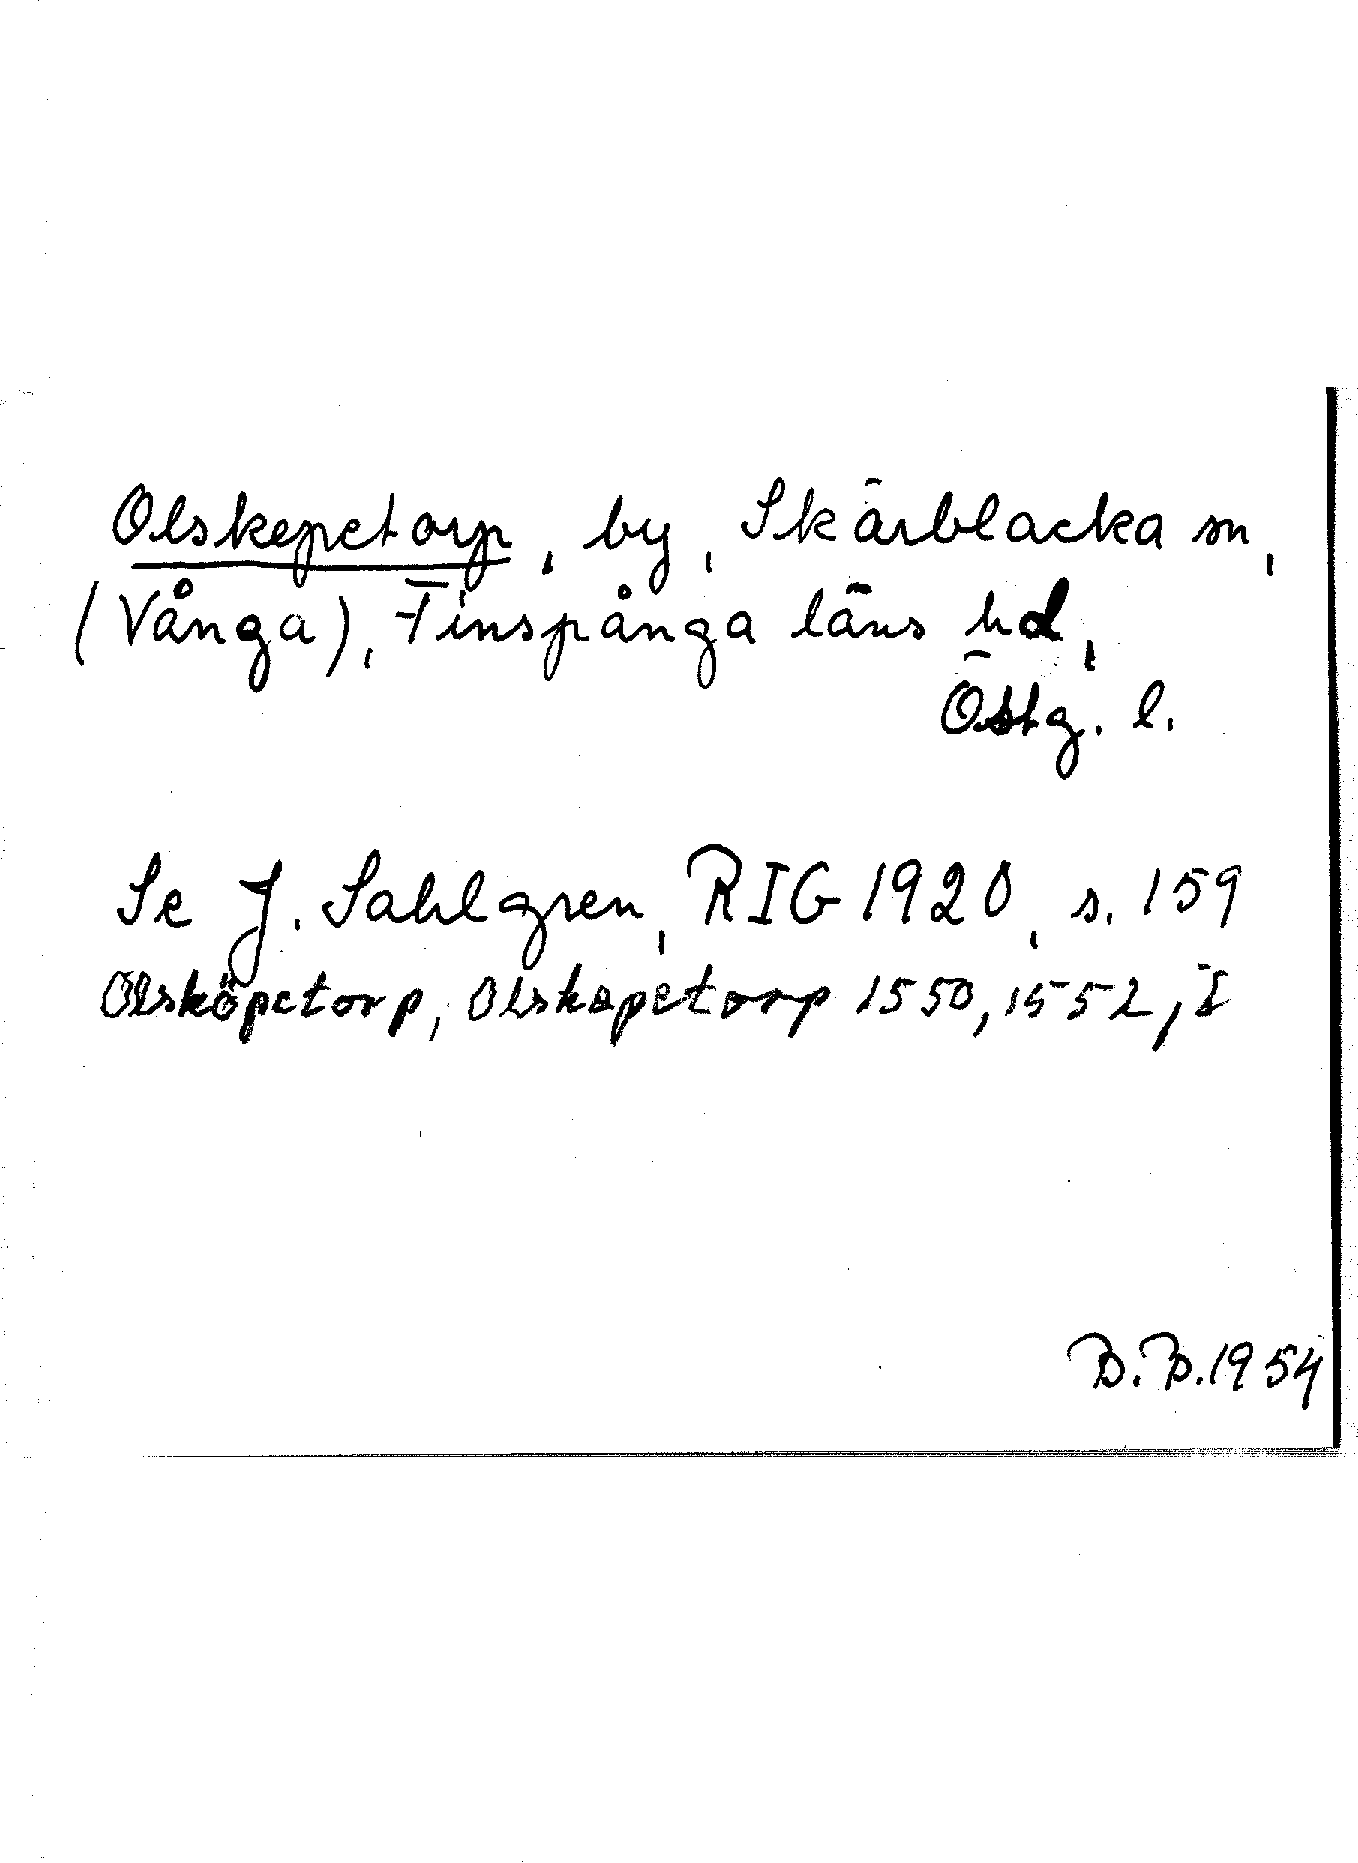 Olskepetorp, by, Skärblacka sn,
(Vånga), Finspånga läns hd,
Östg. l.
Se J. Sahlgren, RIG 1920, s. 159
Olsköpetorp, Olskepetorp 1550, 1552, I
B.B. 1954